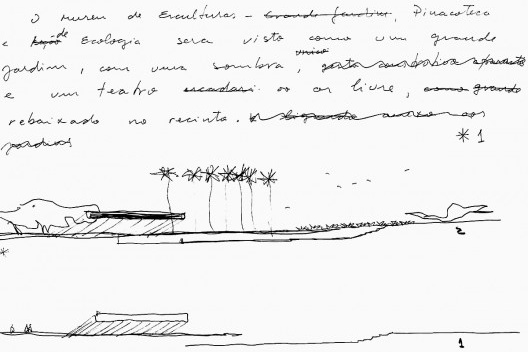 O Museu de Esculturas – Grande Jardim, Pinacoteca
e de Ecologia sera visto como um grande
jardim, com uma sombra, unica
e um teatro ao ar livre, como grande
rebaixado no recinto. aos
jardins
* 1
2
*
1